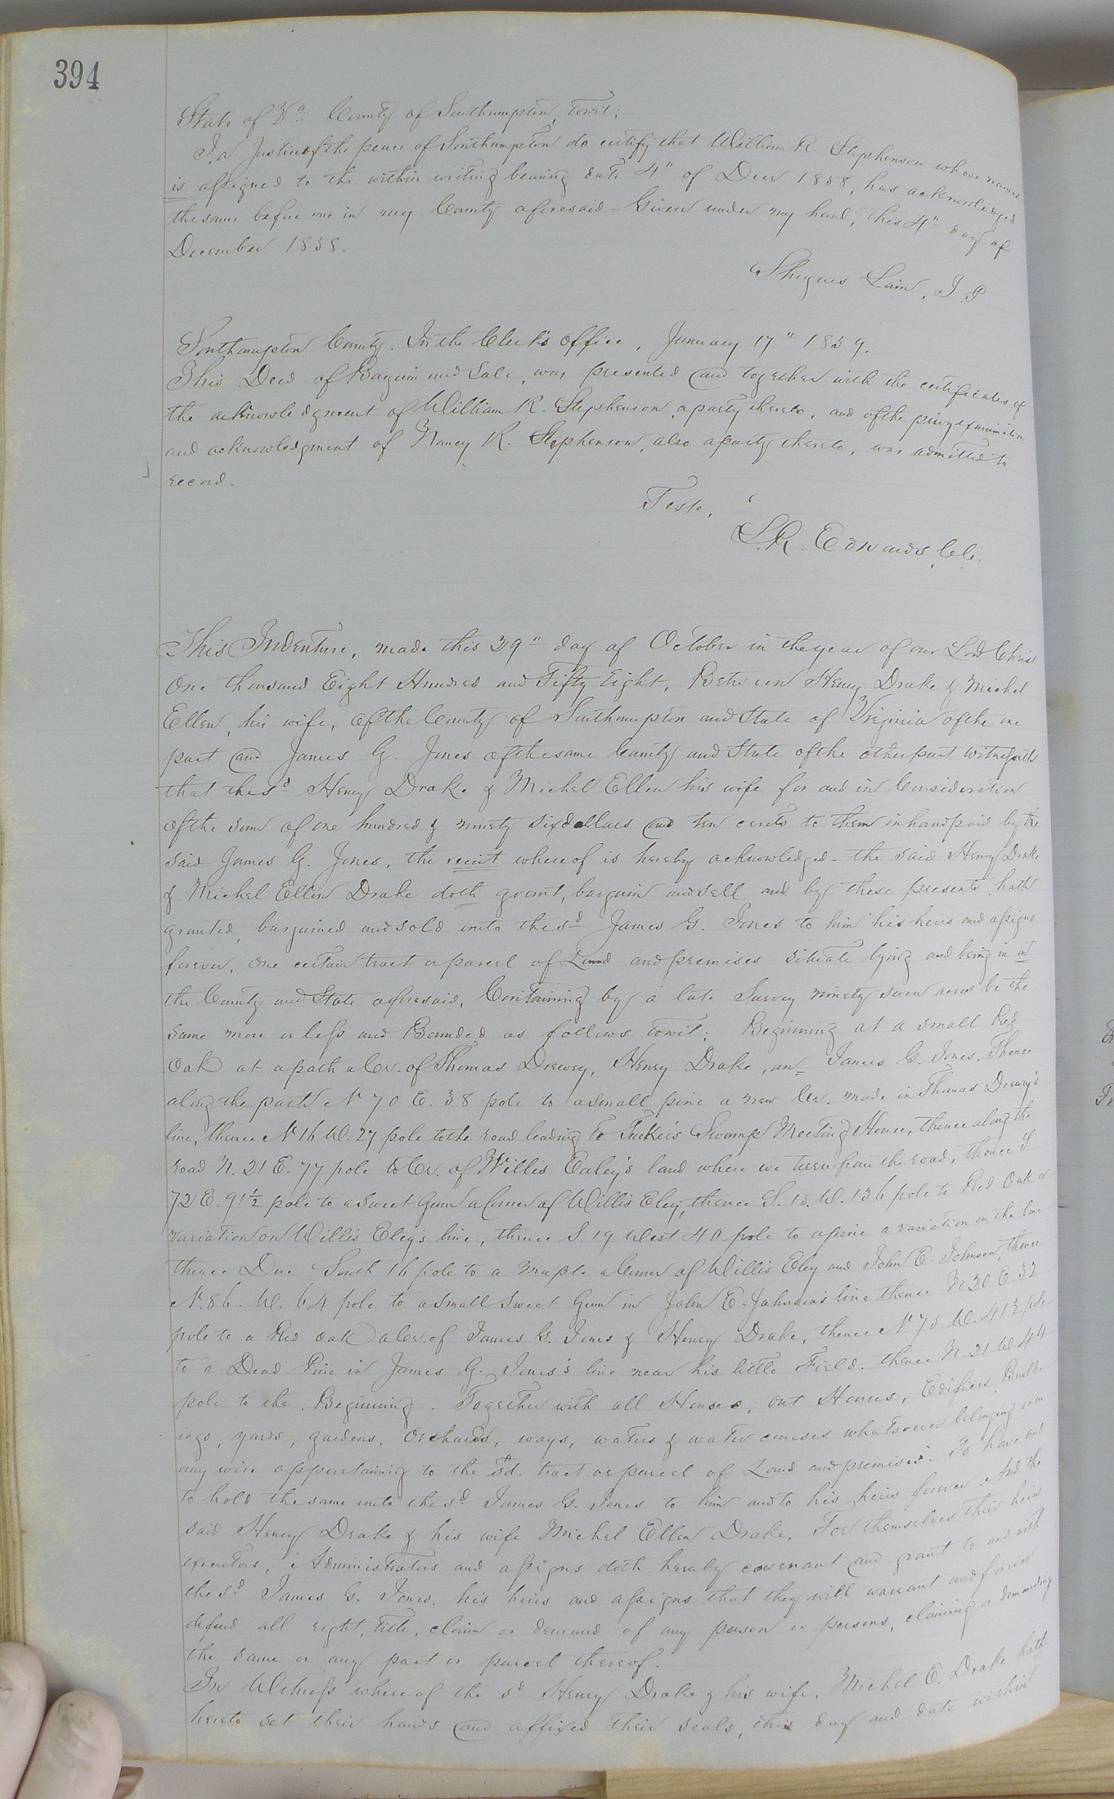 394
State of Va. County of Southampton, towit;
I, a Justice of the peace of Southampton do certify that William R. Stephenson whose name
is assigned to the within writing bearing date 4" of Decr 1858, has acknowledged
the same before me in my County aforesaid - Given under my hand, this 4" day of
December 1858.
Lain, J. P
Southampton County. In the Clerk's office, January 17" 1859.
This Deed of Bargain and Sale, was presented and together with the certificates of
the acknowledgment of William R. Stephenson, a party thereto, and of the privy examination
and acknowledgment of Nancy R. Stephenson, also a party thereto, was admitted to
record.
Teste,
L. R. Edwards, C.C.
This Indenture, made this 29" day of October in the year of our Lord Christ
One thousand Eight Hundred and Fifty Eight, Between Henry Drake & Michel
Ellen, his wife, of the County of Southampton and State of Virginia of the one
part and James G. Jones of the same County and State of the other part witnesseth
that the sd Henry Drake & Michel Ellen his wife for and in Consideration
of the sum of one hundred & ninety six dollars and ten cents to them in hand paid by the
said James G. Jones, the reciit whereof is hereby acknowledged - the said Henry Drake
& Michel Ellen Drake doth grant, bargain and sell and by these presents hath
granted, bargained and sold unto the sd James G. Jones to him his heirs and assigns
forever, one certain tract or parcel of Land and premises situate lying and being in
the County and State aforesaid, Containing by a late Survey ninety seven acres be the
same more or less and Bounded as follows towit; Beginning at a small Red
Oak at a path a Cor. of Thomas Drewry, Henry Drake, an James G. Jones, Thence
along the path N 70 E. 38 pole to a small pine a new Cor. made in Thomas Drewry's
line, thence N 16 W. 27 pole to the road leading to Tucker's Swamp Meeting House, thence along the
road N. 21 E. 77 pole to Cor. of Willis Ealey's land where we turn from the road, thence S
72 E. 91½ pole to a sweet Gum a Corner of Willis Eley, thence S. 18. W. 136 pole to Red Oak a
variation on Willis Eley's line, thence S 19 West 40 pole to a pine a variation on the line
thence Due South 16 pole to a Maple a Corner of Willis Eley and John E. Johnson, thence
N. 86. W. 64 pole to a small Sweet Gum in John E. Johnson's line thence N 30 E. 32
pole to a Red oak a Cor. of James G. Jones & Henry Drake, thence N 75 W. 41½ pole
to a Dead Pine in James G. Jones's line near his little Field. thence N. 21 W 44
pole to the Beginning. Together with all Houses, out Houses, Edifices, Build-
ings, yards, gardens, Orchards, ways, waters & water courses whatsoever belonging or in
any wise appertaining to the sd. tract or parcel of Land and premises. To have and
to hold the same unto the sd James G. Jones to him and to his heirs forever. And the
said Henry Drake & his wife Michel Ellen Drake, For themselves their heirs
executors, Administrators and assigns doth hereby covenant and grant to and with
the sd James G. Jones, his heirs and assigns that they will warrant and forever
defend all right, title, claim or demand of any person or persons, claiming or demanding
the same or any part or parcel thereof.
In Witness where of the sd Henry Drake & his wife, Michel E. Drake hath
hereto set their hands and affixed their seals, this day and date within